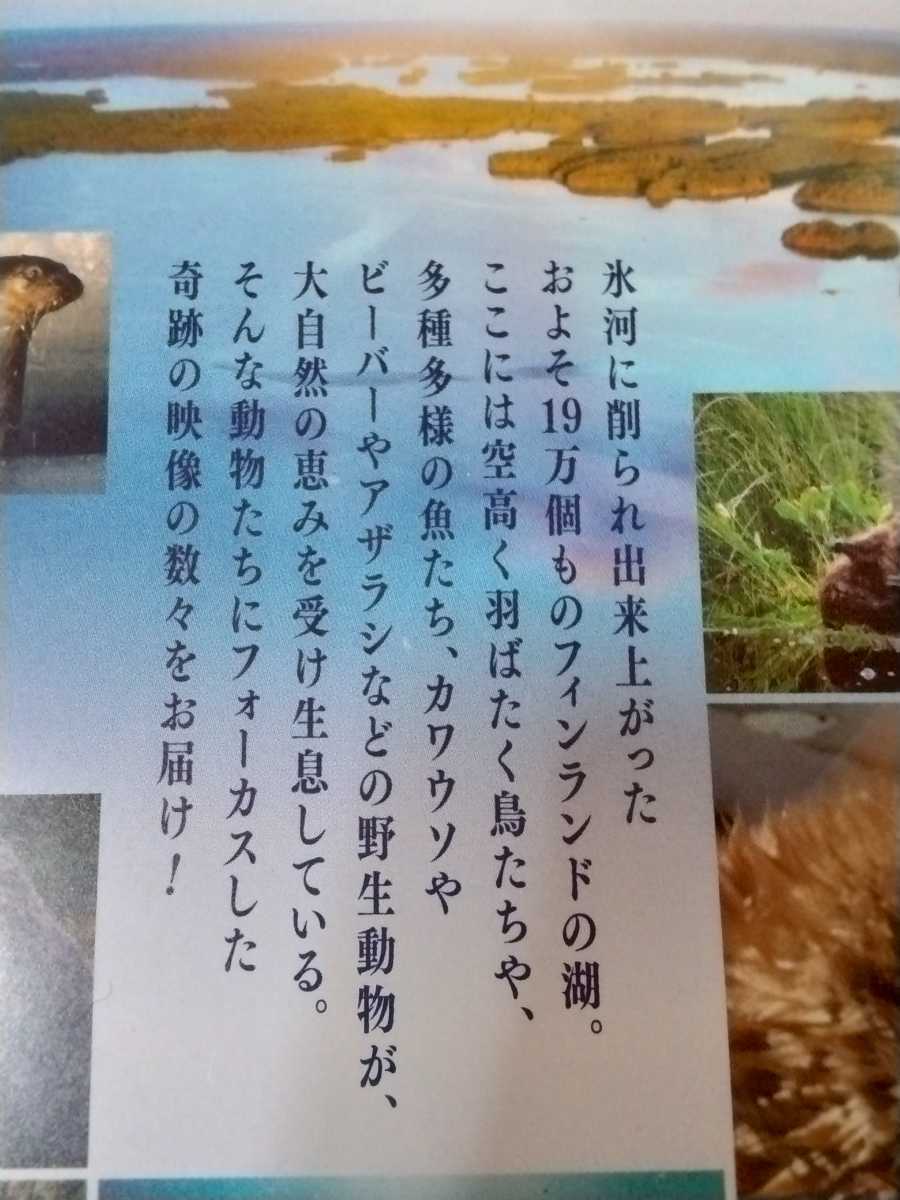 氷河に削られ出来上がった
およそ19万個ものフィンランドの湖。
ここには空高く羽ばたく鳥たちや、
多種多様の魚たち、カワウソや
ビーバーやアザラシなどの野生動物が、
大自然の恵みを受け生息している。
そんな動物たちにフォーカスした
奇跡の映像の数々をお届け!